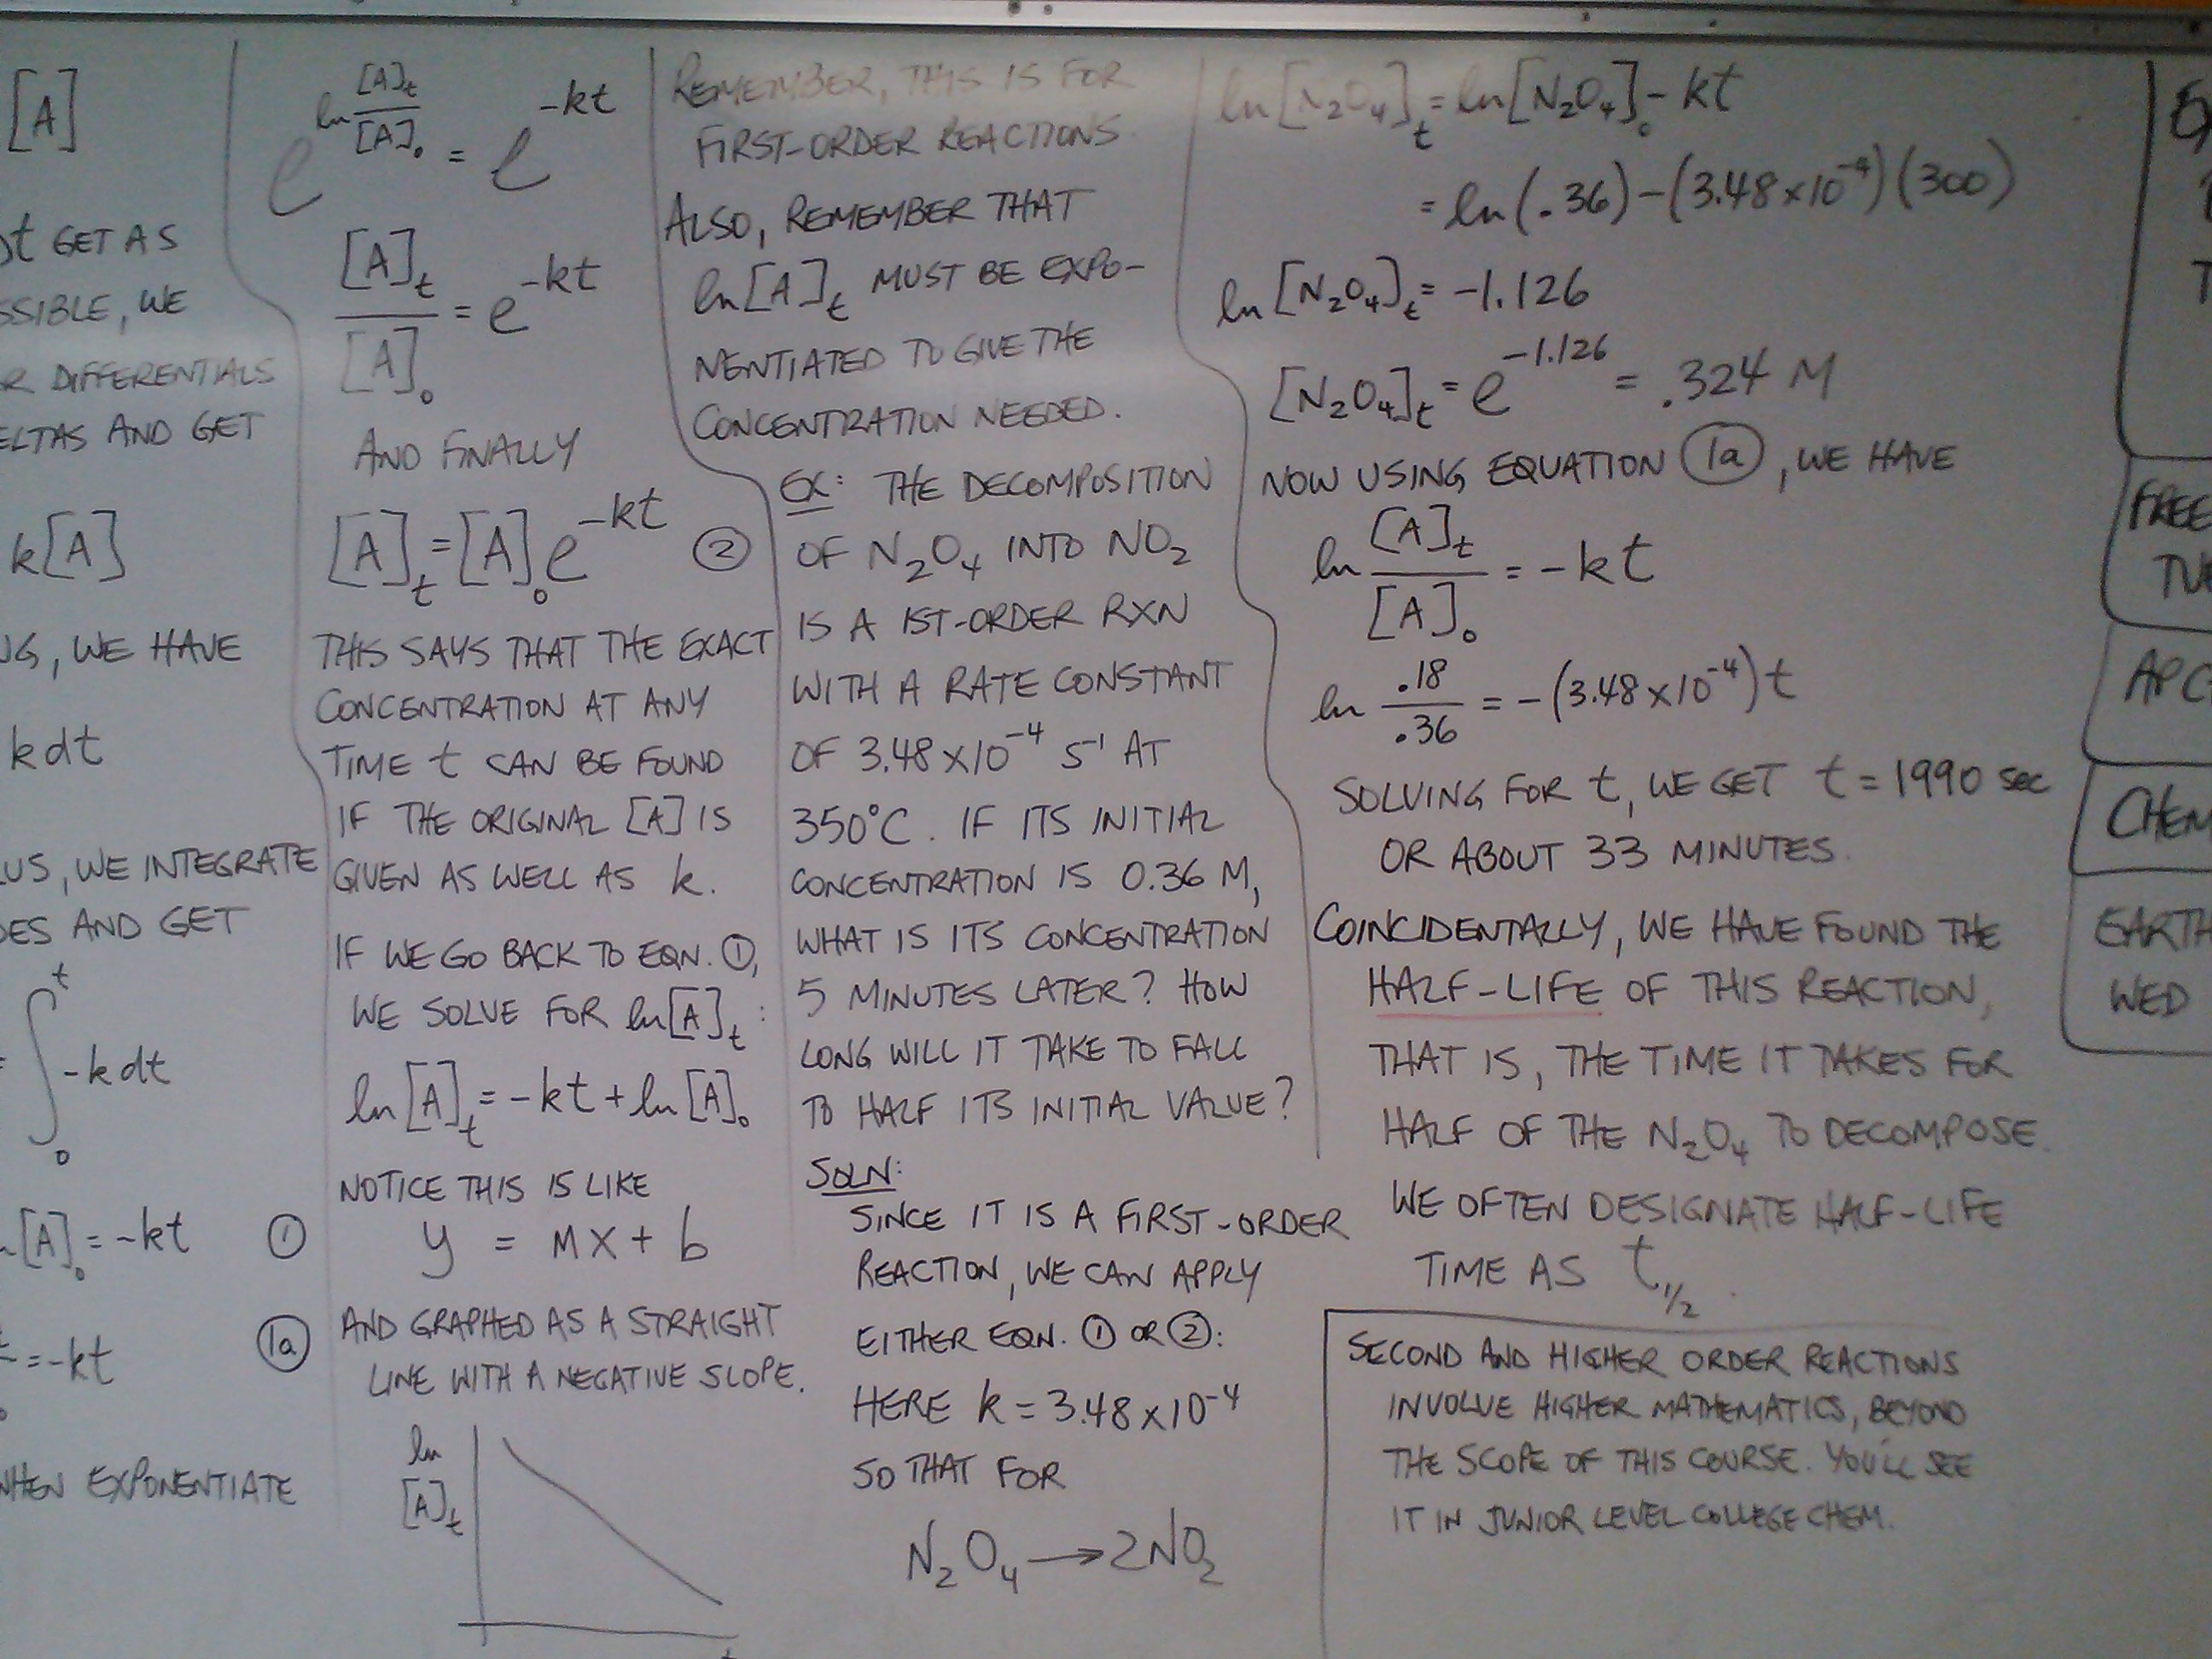 [A]
t GET AS
SSIBLE, WE
R DIFFERENTIALS
ELTAS AND GET
k[A]
NG, WE HAVE
k dt
LUS, WE INTEGRATE
DES AND GET
= ∫₀ᵗ -k dt
[A]₀ = -kt ①
= -kt (1a)
WHEN EXPONENTIATE
e^(ln [A]ₜ/[A]₀) = e^(-kt)
[A]ₜ/[A]₀ = e^(-kt)
AND FINALLY
[A]ₜ = [A]₀ e^(-kt) ②
THIS SAYS THAT THE EXACT
CONCENTRATION AT ANY
TIME t CAN BE FOUND
IF THE ORIGINAL [A] IS
GIVEN AS WELL AS k.
IF WE GO BACK TO EQN. ①,
WE SOLVE FOR ln[A]ₜ:
ln[A]ₜ = -kt + ln[A]₀
NOTICE THIS IS LIKE
y = mx + b
AND GRAPHED AS A STRAIGHT
LINE WITH A NEGATIVE SLOPE.
ln
[A]ₜ
REMEMBER, THIS IS FOR
FIRST-ORDER REACTIONS.
ALSO, REMEMBER THAT
ln[A]ₜ MUST BE EXPO-
NENTIATED TO GIVE THE
CONCENTRATION NEEDED.
EX: THE DECOMPOSITION
OF N₂O₄ INTO NO₂
IS A 1ST-ORDER RXN
WITH A RATE CONSTANT
OF 3.48 x 10⁻⁴ S⁻¹ AT
350°C. IF ITS INITIAL
CONCENTRATION IS 0.36 M,
WHAT IS ITS CONCENTRATION
5 MINUTES LATER? HOW
LONG WILL IT TAKE TO FALL
TO HALF ITS INITIAL VALUE?
SOLN:
SINCE IT IS A FIRST-ORDER
REACTION, WE CAN APPLY
EITHER EQN. ① OR ②:
HERE k = 3.48 x 10⁻⁴
SO THAT FOR
N₂O₄ → 2NO₂
ln[N₂O₄]ₜ = ln[N₂O₄]₀ - kt
= ln(.36) - (3.48 x 10⁻⁴)(300)
ln[N₂O₄]ₜ = -1.126
[N₂O₄]ₜ = e^(-1.126) = .324 M
NOW USING EQUATION (1a), WE HAVE
ln [A]ₜ/[A]₀ = -kt
ln .18/.36 = -(3.48 x 10⁻⁴)t
SOLVING FOR t, WE GET t = 1990 sec
OR ABOUT 33 MINUTES.
COINCIDENTALLY, WE HAVE FOUND THE
HALF-LIFE OF THIS REACTION,
THAT IS, THE TIME IT TAKES FOR
HALF OF THE N₂O₄ TO DECOMPOSE.
WE OFTEN DESIGNATE HALF-LIFE
TIME AS t₁/₂.
SECOND AND HIGHER ORDER REACTIONS
INVOLVE HIGHER MATHEMATICS, BEYOND
THE SCOPE OF THIS COURSE. YOU'LL SEE
IT IN JUNIOR LEVEL COLLEGE CHEM.
FREE
TU
AP C
CHEM
EARTH
WED